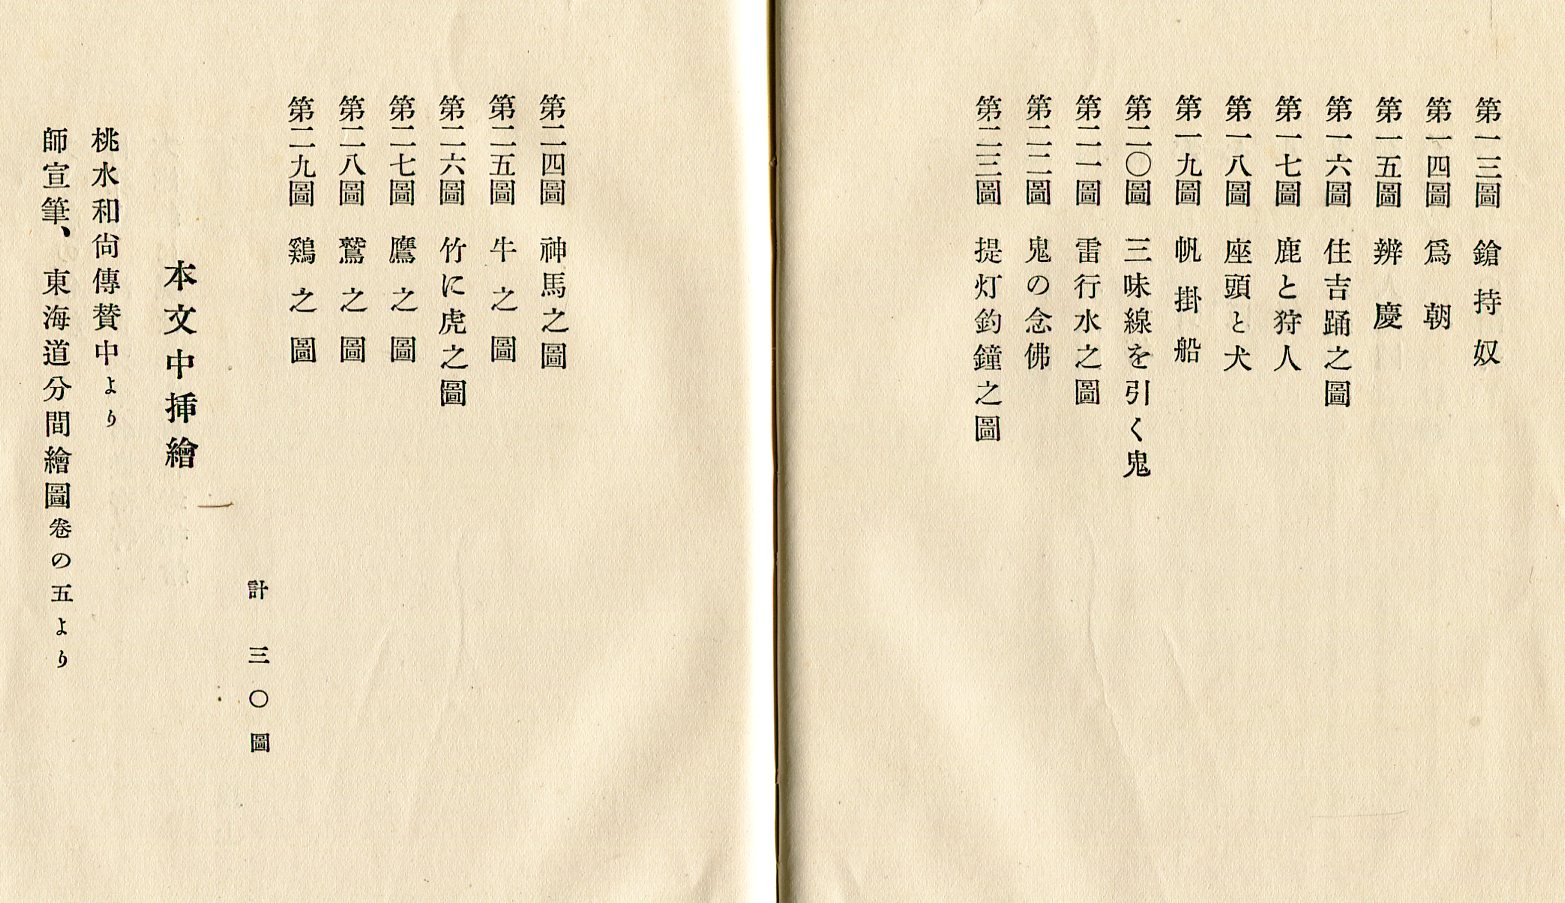 第一三圖　鎗持奴
第一四圖　爲朝
第一五圖　辨慶
第一六圖　住吉踊之圖
第一七圖　鹿と狩人
第一八圖　座頭と犬
第一九圖　帆掛船
第二〇圖　三味線を引く鬼
第二一圖　雷行水之圖
第二二圖　鬼の念佛
第二三圖　提灯釣鐘之圖
第二四圖　神馬之圖
第二五圖　牛之圖
第二六圖　竹に虎之圖
第二七圖　鷹之圖
第二八圖　鷲之圖
第二九圖　鷄之圖
計三〇圖
本文中挿繪
桃水和尙傳賛中より
師宣筆、東海道分間繪圖卷の五より